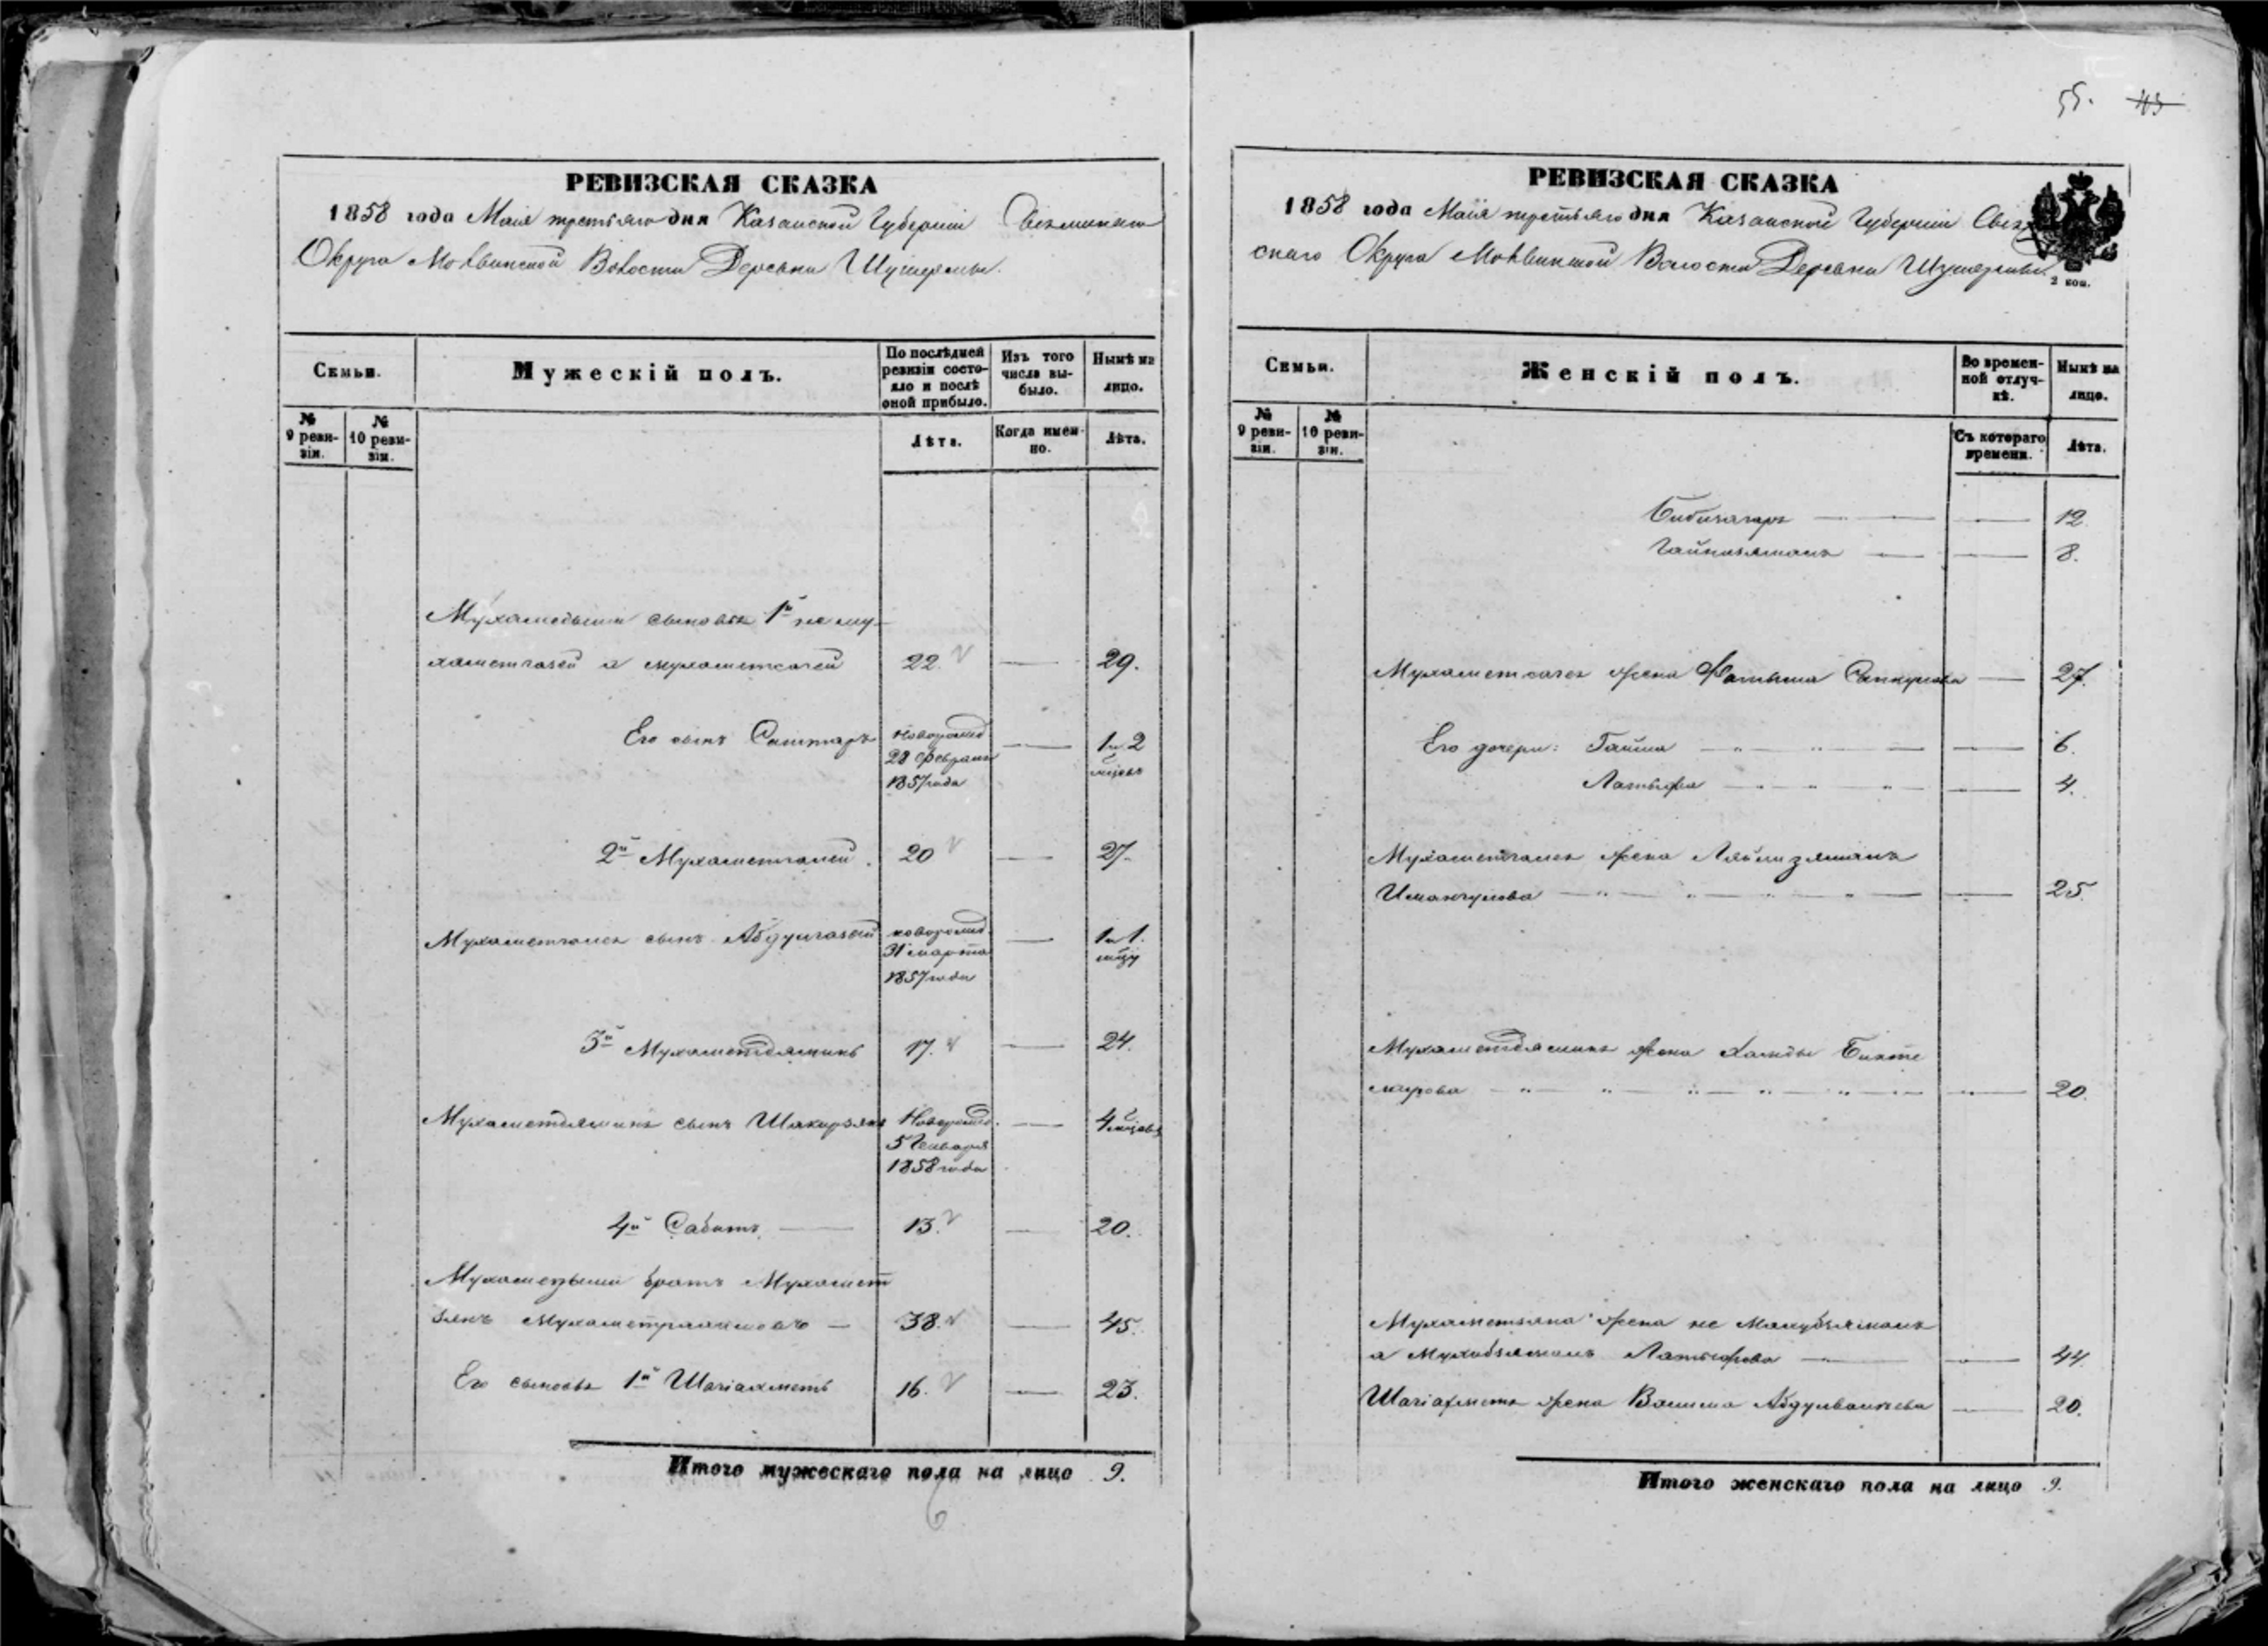 55. 43
РЕВИЗСКАЯ СКАЗКА
1858 года Маия третьяго дня Казанской Губерніи Свіяжскаго
Округа Моквинской Волости Деревни Шушермы.
Семьи.
Мужескій полъ.
По послѣдней ревизіи состояло и послѣ оной прибыло.
Изъ того числа выбыло.
Нынѣ на лицо.
№ 9 ревизіи.
№ 10 ревизіи.
Лѣта.
Когда именно.
Лѣта.
Мухаметьши сыновья 1й не му-
хаметгазей а мухаметсалей 22. 29.
Его сынъ Саттаръ новорожд 28 февраля 1857 года 1 и 2 мѣсяц
2й Мухаметгалей. 20 27.
Мухаметгалея сынъ Абдулгазей новорожд. 31 марта 1857 года 1 и 1. мѣсяцу
3й Мухаметдяминъ 17. 24.
Мухаметдямина сынъ Шакирзянъ Новорожд. 5 Генваря 1858 года 4 мѣсяцовъ
4й Сабитъ 13. 20.
братъ Мухамет
зянъ Мухаметрахимовъ 38. 45.
Его сыновья 1й Шагіахметъ 16. 23.
Итого мужескаго пола на лицо 9.
6
РЕВИЗСКАЯ СКАЗКА
1858 года Маія третьяго дня Казанской Губерніи Свіяж
скаго Округа Моквинской Волости Деревни Шушермы.
2 коп.
Семьи.
Женскій полъ.
Во временной отлучкѣ.
Нынѣ на лицо.
№ 9 ревизіи.
№ 10 ревизіи.
Съ котораго времени.
Лѣта.
Бибисагаръ 12.
Гайнизямалъ 8.
Мухаметсалея жена Фатыма 27.
Его дочери: Гайша 6.
Латыфа 4.
Мухаметгалея жена
Иманкулова 25.
Мухаметдямина жена Халида Бикте
мирова 20.
Мухаметзяна жена не Махубзямалъ
а Мухибзямалъ Латыфова 44
Шагіахмета жена Абдулвалиева 20.
Итого женскаго пола на лицо 9.